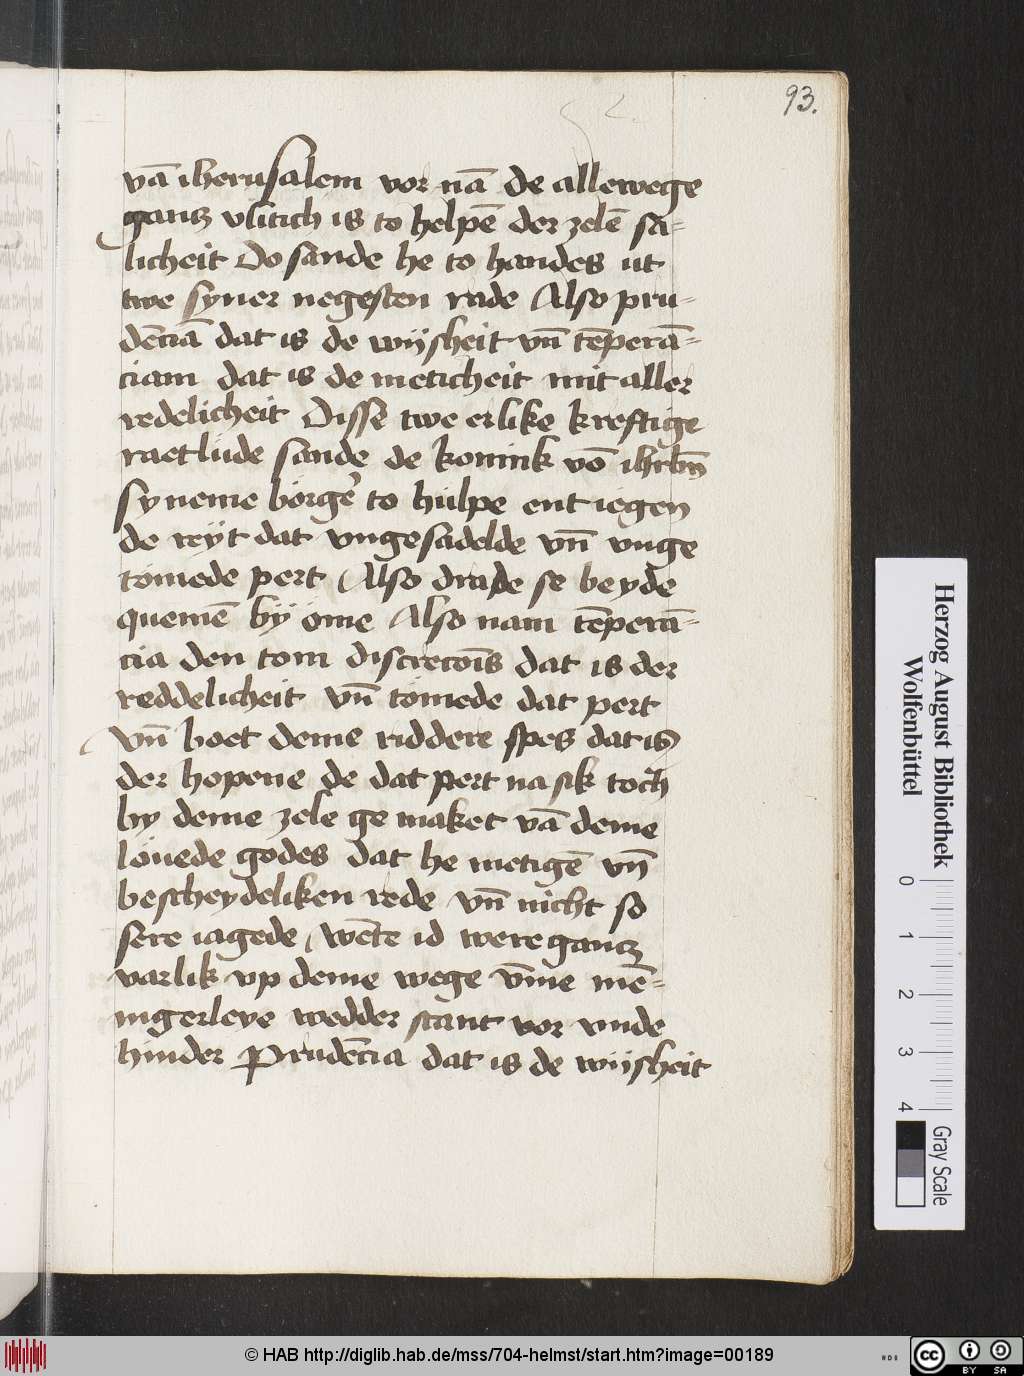 93.
vā iherusalem vor nā de allewege
gantz vlitich is to helpē der zelē sa-
licheit Do sande he to handes ut
twe syner negesten rade Also pru-
dēciā dat is de wijsheit vn̄ tēperā-
ciam dat is de meticheit mit aller
redelicheit Disse twe erlike kreftige
raetlude sande de konink vō ihrlm̄
syneme borgeͬ to hulpe ent iegen
de reyt dat vngesadelde vn̄ vnge
tomede pert Also drade se beyde
quemē by ome Also nam tēperā-
cia den tom discrecōis dat is der
reddelicheit vn̄ tomede dat pert
vn̄ boet deme riddere spes dat is
der hopene de dat pert na sik toch
by deme zele ge maket vā deme
louede godes dat he metigē vn̄
bescheydeliken rede vn̄ nicht so
sere iagede, wēte id were gantz
varlik vp deme wege v̄me mē-
nigerleye wedder stant vor vnde
hinder Prudēcia dat is de wijsheit
Herzog August Bibliothek
Wolfenbüttel
0 1 2 3 4
Gray Scale
© HAB http://diglib.hab.de/mss/704-helmst/start.htm?image=00189
HAB
cc BY SA